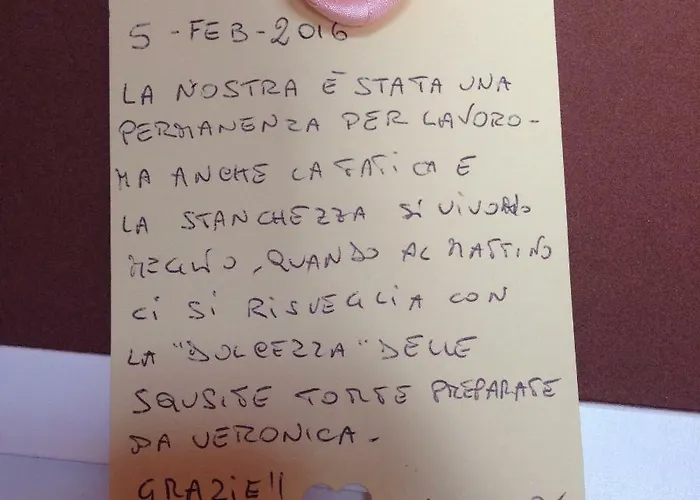 5 - FEB - 2016
LA NOSTRA È STATA UNA
PERMANENZA PER LAVORO -
MA ANCHE LA FATICA E
LA STANCHEZZA SI VIVONO
MEGLIO, QUANDO AL MATTINO
CI SI RISVEGLIA CON
LA "DOLCEZZA" DELLE
SQUSITE TORTE PREPARATE
DA VERONICA -
GRAZIE!!